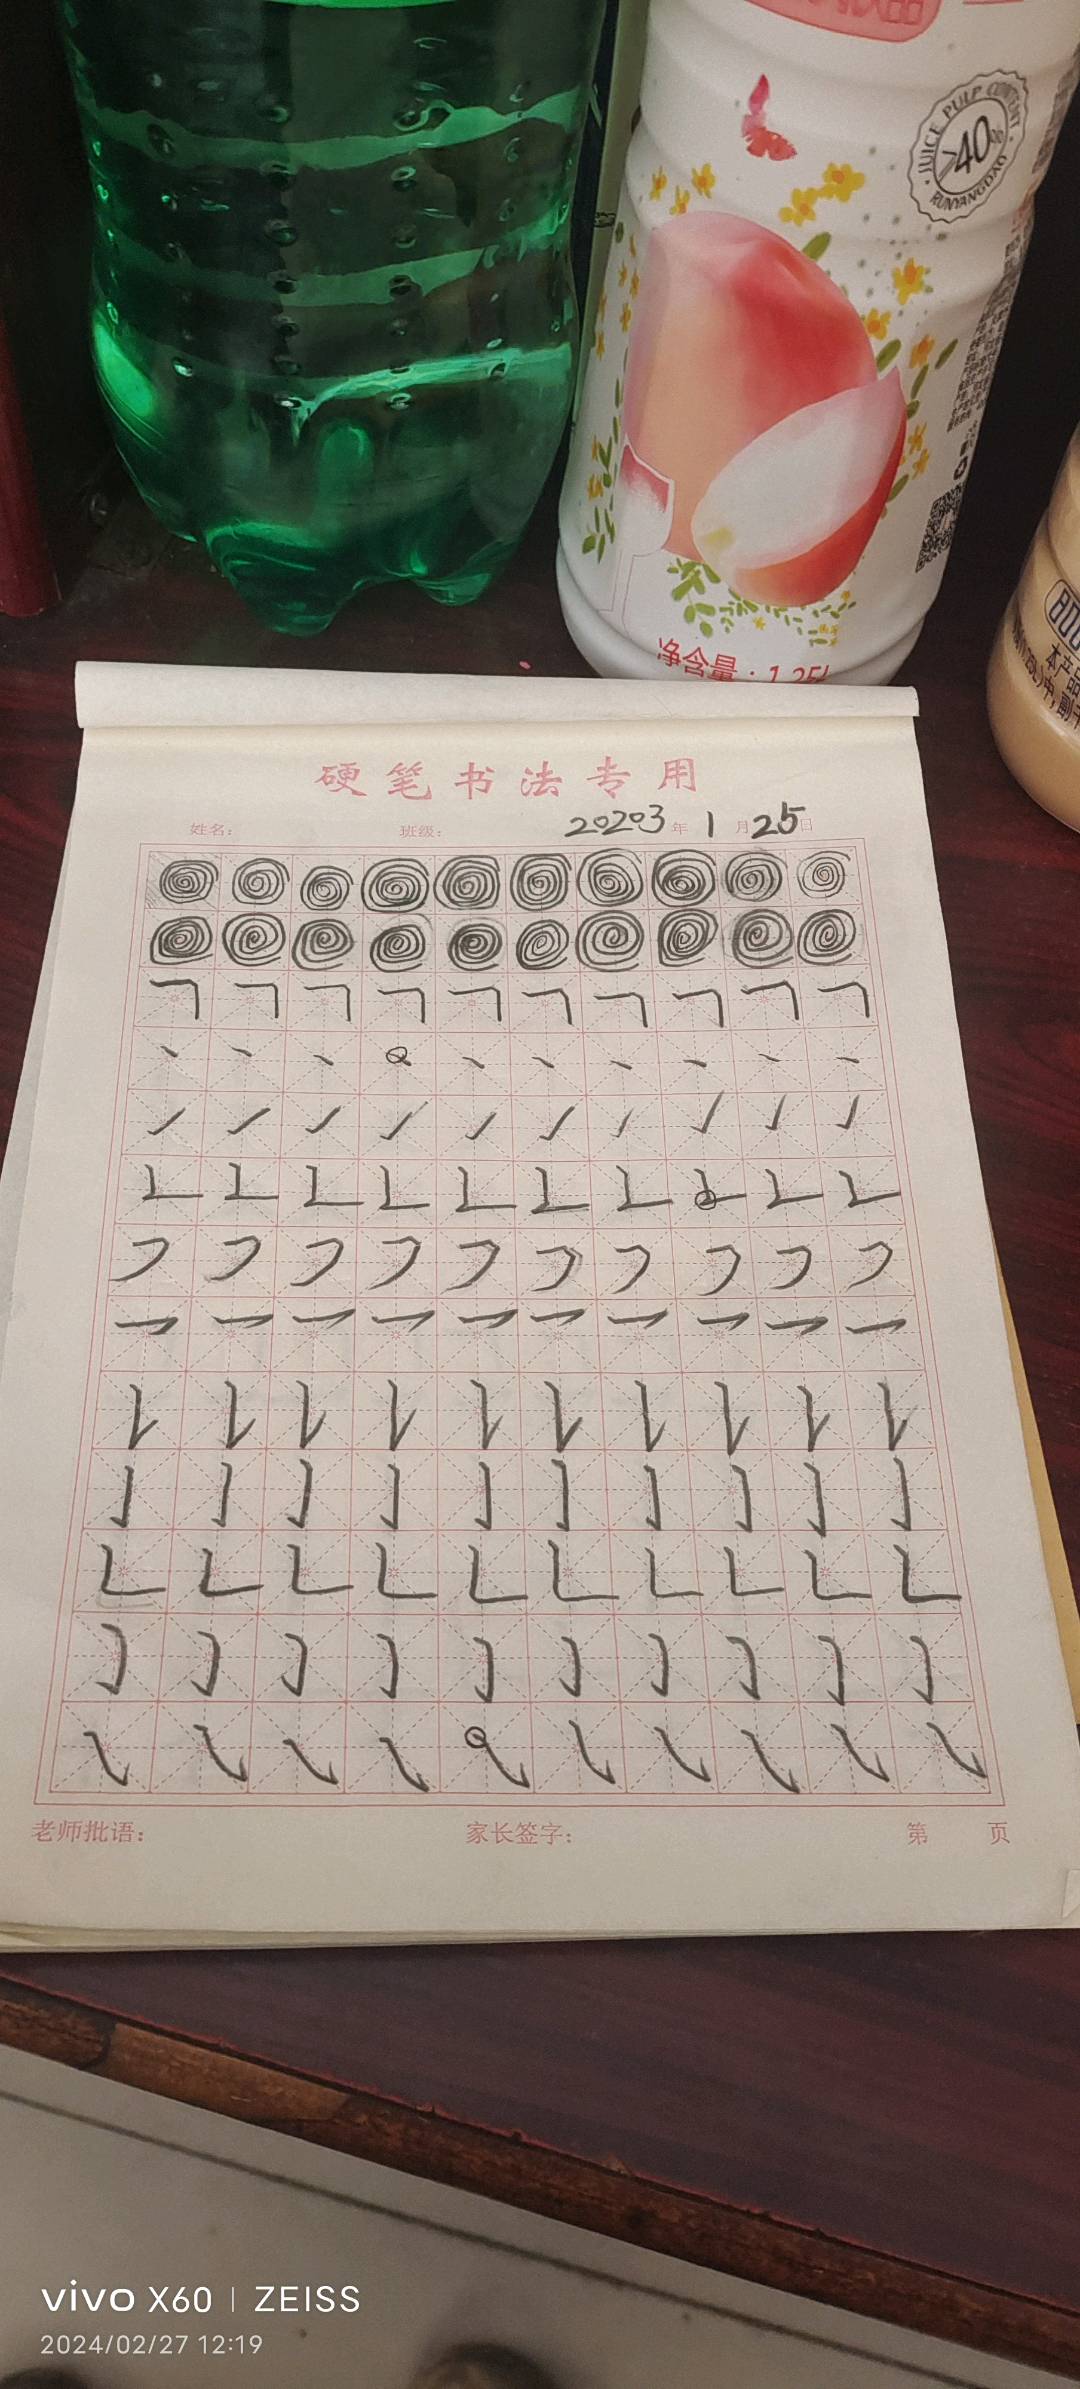 JUICE PULP CONTENT
>40%
RUNYANGDAO
净含量：1.25L
本产品
硬笔书法专用
姓名： 班级： 20203年 1月25日
老师批语： 家长签字： 第 页
vivo X60 | ZEISS
2024/02/27 12:19